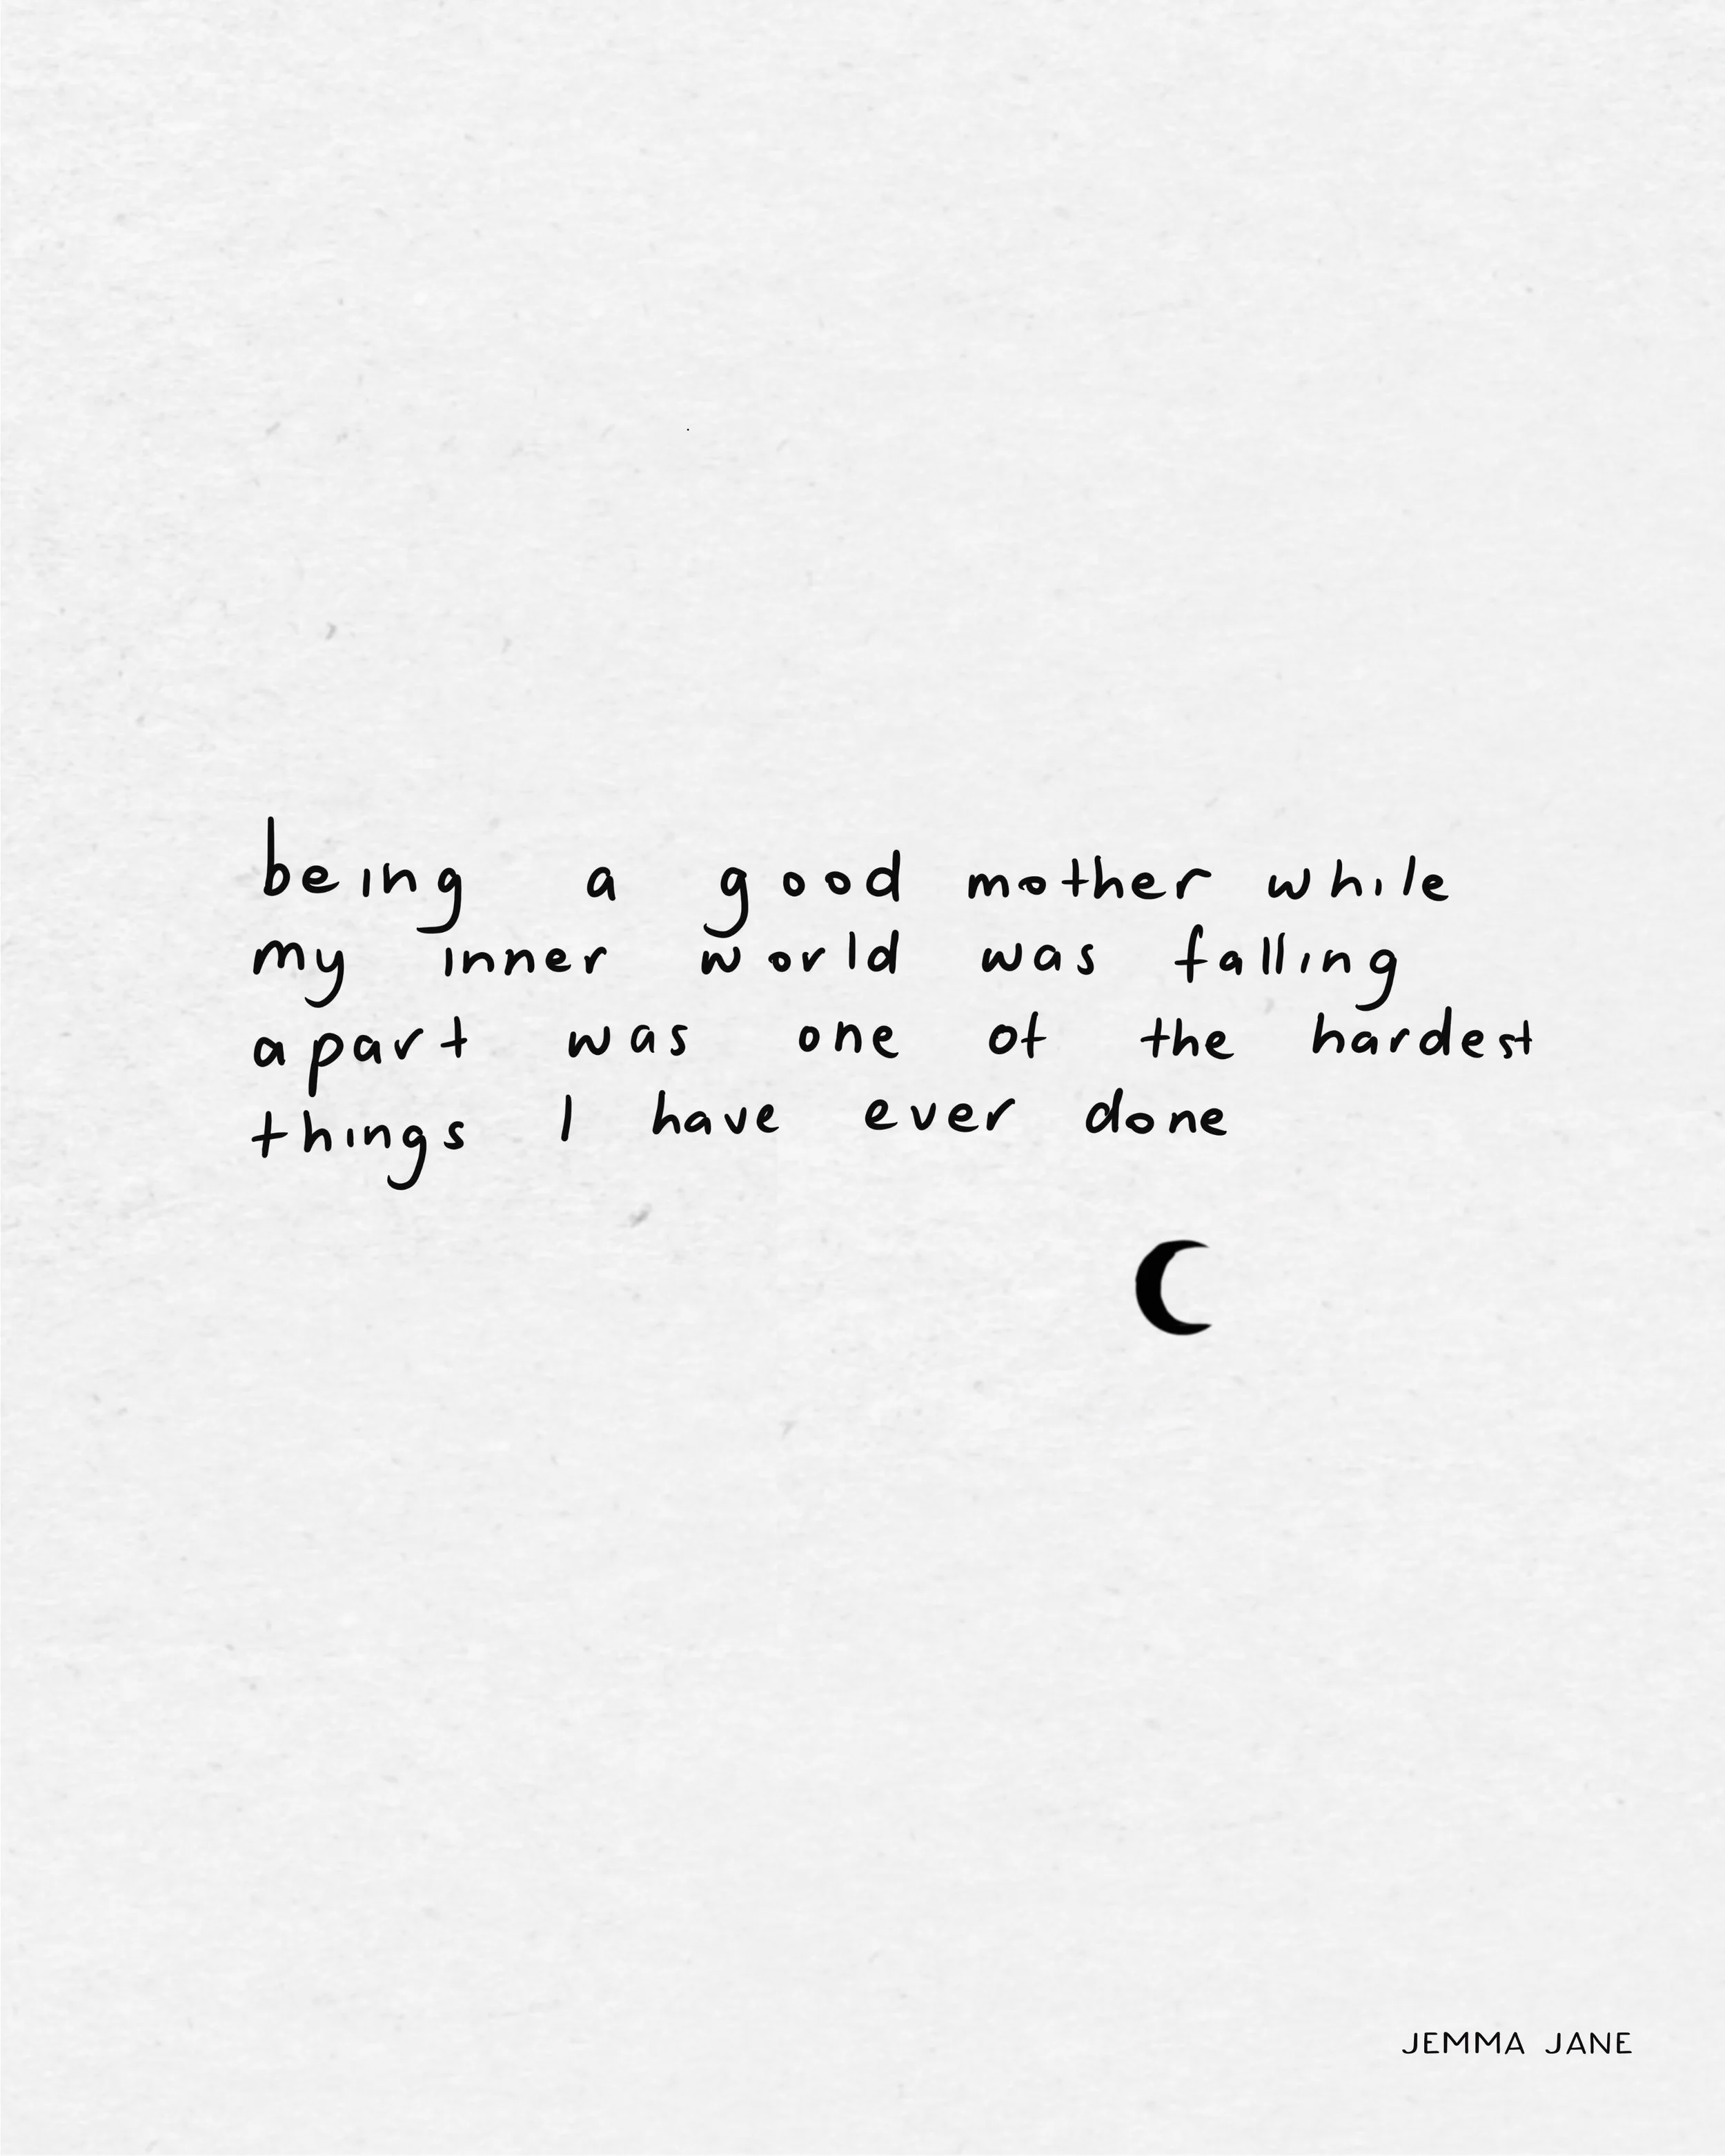 being a good mother while
my inner world was falling
apart was one of the hardest
things I have ever done
JEMMA JANE